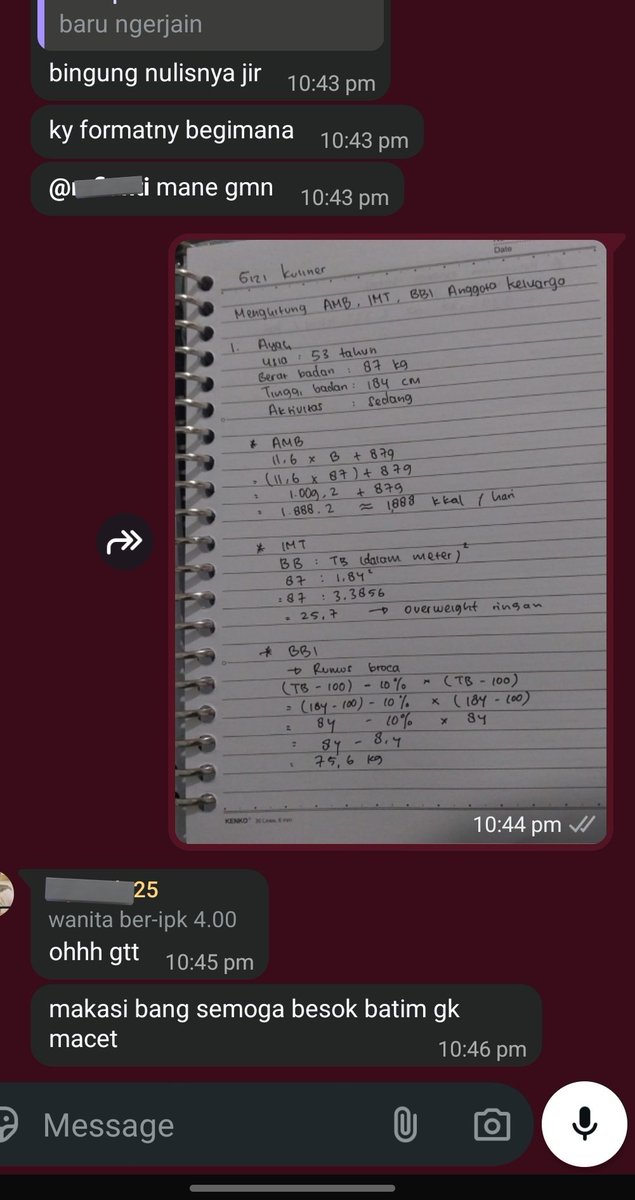 baru ngerjain
bingung nulisnya jir 10:43 pm
ky formatny begimana 10:43 pm
@ i mane gmn 10:43 pm
Date
Gizi Kuliner
Menghitung AMB, IMT, BBI Anggota keluarga
1. Ayah
Usia : 53 tahun
Berat badan : 87 kg
Tinggi badan : 184 cm
Aktivitas : Sedang
* AMB
11.6 x B + 879
= (11,6 x 87) + 879
= 1.009,2 + 879
= 1.888.2 ≈ 1,888 kkal / hari
* IMT
BB : TB (dalam meter)²
87 : 1.84²
= 87 : 3.3856
= 25,7 → overweight ringan
* BBI
→ Rumus broca
(TB - 100) - 10% x (TB - 100)
= (184 - 100) - 10% x (184 - 100)
= 84 - 10% x 84
= 84 - 8,4
= 75,6 kg
KENKO
10:44 pm
25
wanita ber-ipk 4.00
ohhh gtt 10:45 pm
makasi bang semoga besok batim gk
macet 10:46 pm
Message